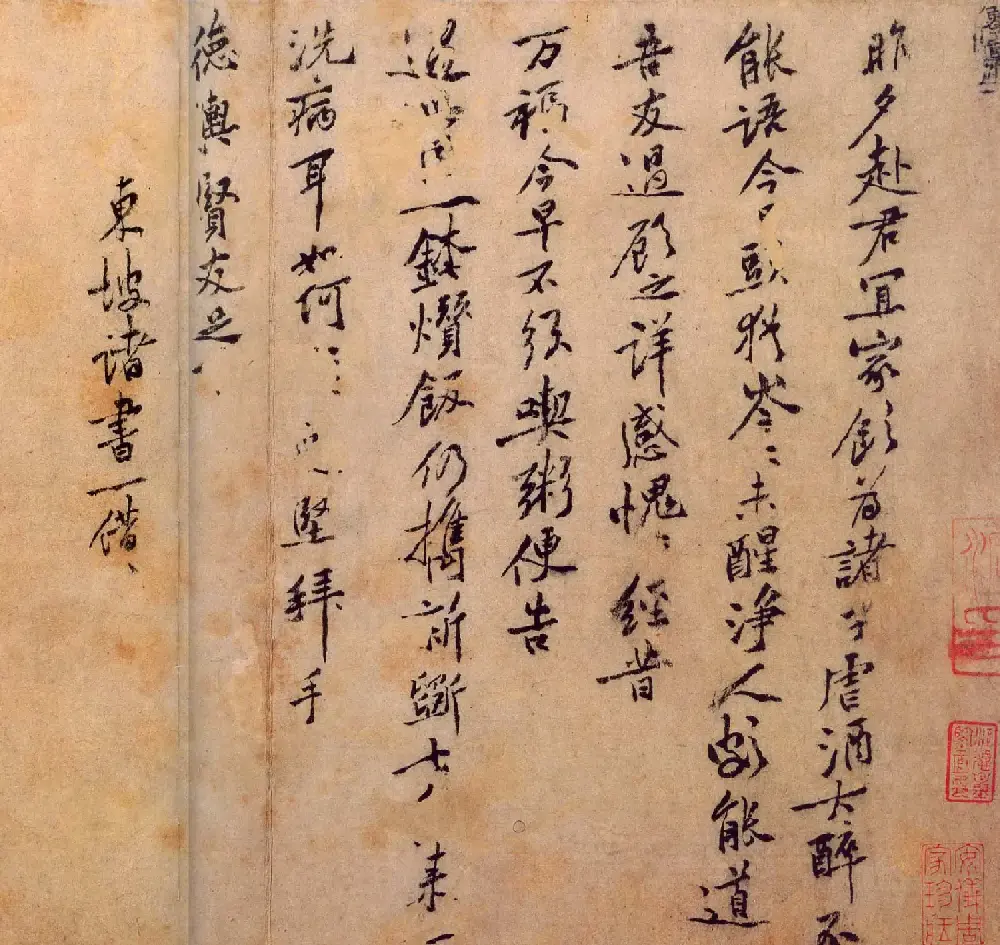 昨夕赴君宜家飲為諸子虐酒大醉不
能語今日頭猶岑〻未醒淨人頗能道
吾友過顧之詳感愧〻經昔
万福今早不須喫粥便告
一鉢爦飯仍攜前斷七來一
洗病耳如何〻〻堅拜手
德輿賢友足
東坡諸書一借〻